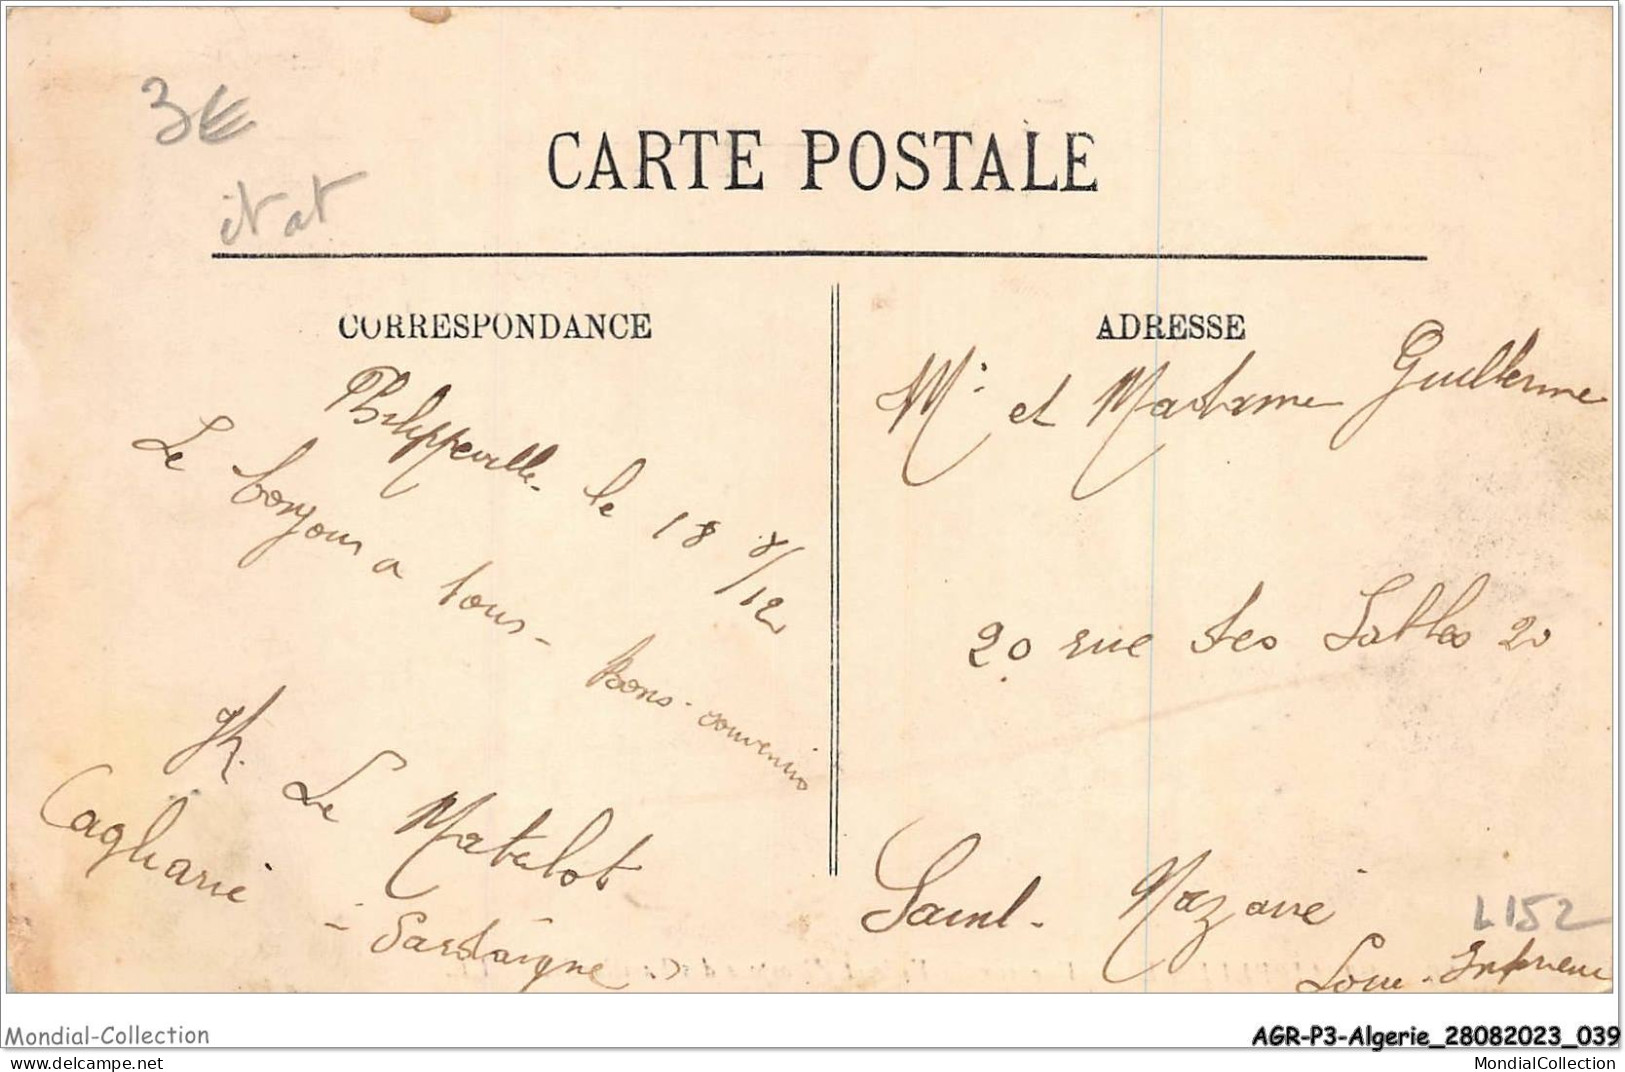 3€
état
CARTE POSTALE
CORRESPONDANCE
Philippeville le 18 8/12
Le bonjour a tous -
Bons souvenirs
Le Matelot
Cagliarie - Sardaigne
ADRESSE
Mr et Madame Guillerme
20 rue des Sables 20
Saint - Nazaire
Loire - Inférieure
L152
Mondial-Collection
AGR-P3-Algerie_28082023_039
MondialCollection